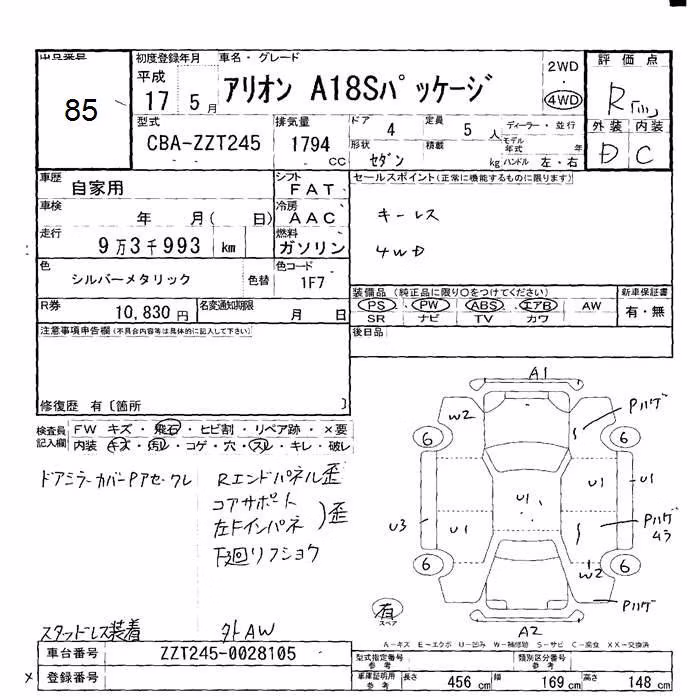 出品番号
85
初度登録年月
平成
17 5 月
車名・グレード
アリオン A18Sパッケージ
2WD
・
4WD
評価点
R
外装 内装
D C
型式
CBA-ZZT245
排気量
1794
CC
ドア
4
定員
5 人
ディーラー・並行
モデル年式 年
形状
セダン
積載
kg
ハンドル 左・右
車歴
自家用
シフト
FAT
車検
年 月( 日)
冷房
AAC
走行
9万3千993 km
燃料
ガソリン
色
シルバーメタリック
色替
色コード
1F7
R券
10,830 円
名変通知期限
月 日
セールスポイント(正常に機能するものに限ります)
キーレス
4WD
装備品(純正品に限り○をつけてください)
PS ・ PW ・ ABS ・ エアB AW
SR ナビ TV カワ
新車保証書
有・無
後日品
注意事項申告欄(不具合内容等は具体的に記入して下さい)
修復歴 有〔箇所 〕
検査員記入欄
FW キズ・飛石・ヒビ割・リペア跡・×要
内装 キズ・汚レ・コゲ・穴・スレ・キレ・破レ
ドアミラーカバーPアセークレ
Rエンドパネル歪
コアサポート
左Fインパネ )歪
下廻リフショク
スタッドレス装着
外AW
A1
W2
Pハゲ
6
6
U1
U1
U1
U3
U1
Pハゲ
43
6
6
W2
Pハゲ
有
スペア
A2
A-キズ E-エクボ U-凹み W-補修跡 S-サビ C-腐食 XX-交換済
車台番号
ZZT245-0028105
× 登録番号
型式指定番号
参考
類別区分番号
参考
車庫証明用
参考
長さ 456 cm
幅 169 cm
高さ 148 cm